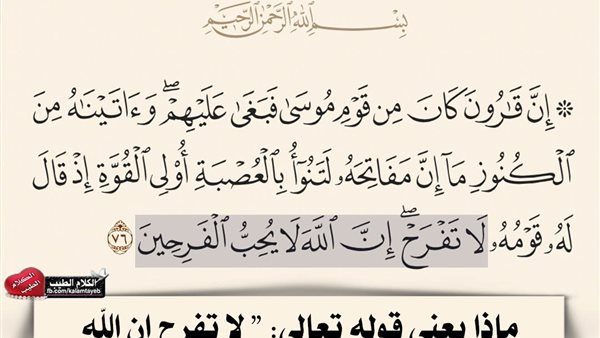 بِسْمِ اللَّهِ الرَّحْمَٰنِ الرَّحِيمِ
۞ إِنَّ قَٰرُونَ كَانَ مِن قَوْمِ مُوسَىٰ فَبَغَىٰ عَلَيْهِمْۖ وَءَاتَيْنَٰهُ مِنَ
ٱلْكُنُوزِ مَآ إِنَّ مَفَاتِحَهُۥ لَتَنُوٓأُ بِٱلْعُصْبَةِ أُو۟لِى ٱلْقُوَّةِ إِذْ قَالَ
لَهُۥ قَوْمُهُۥ لَا تَفْرَحْۖ إِنَّ ٱللَّهَ لَا يُحِبُّ ٱلْفَرِحِينَ ٧٦
الكلام الطيب
الكلام الطيب
fb.com/kalamtayeb
ماذا يعني قوله تعالى: ” لا تفرح إن الله